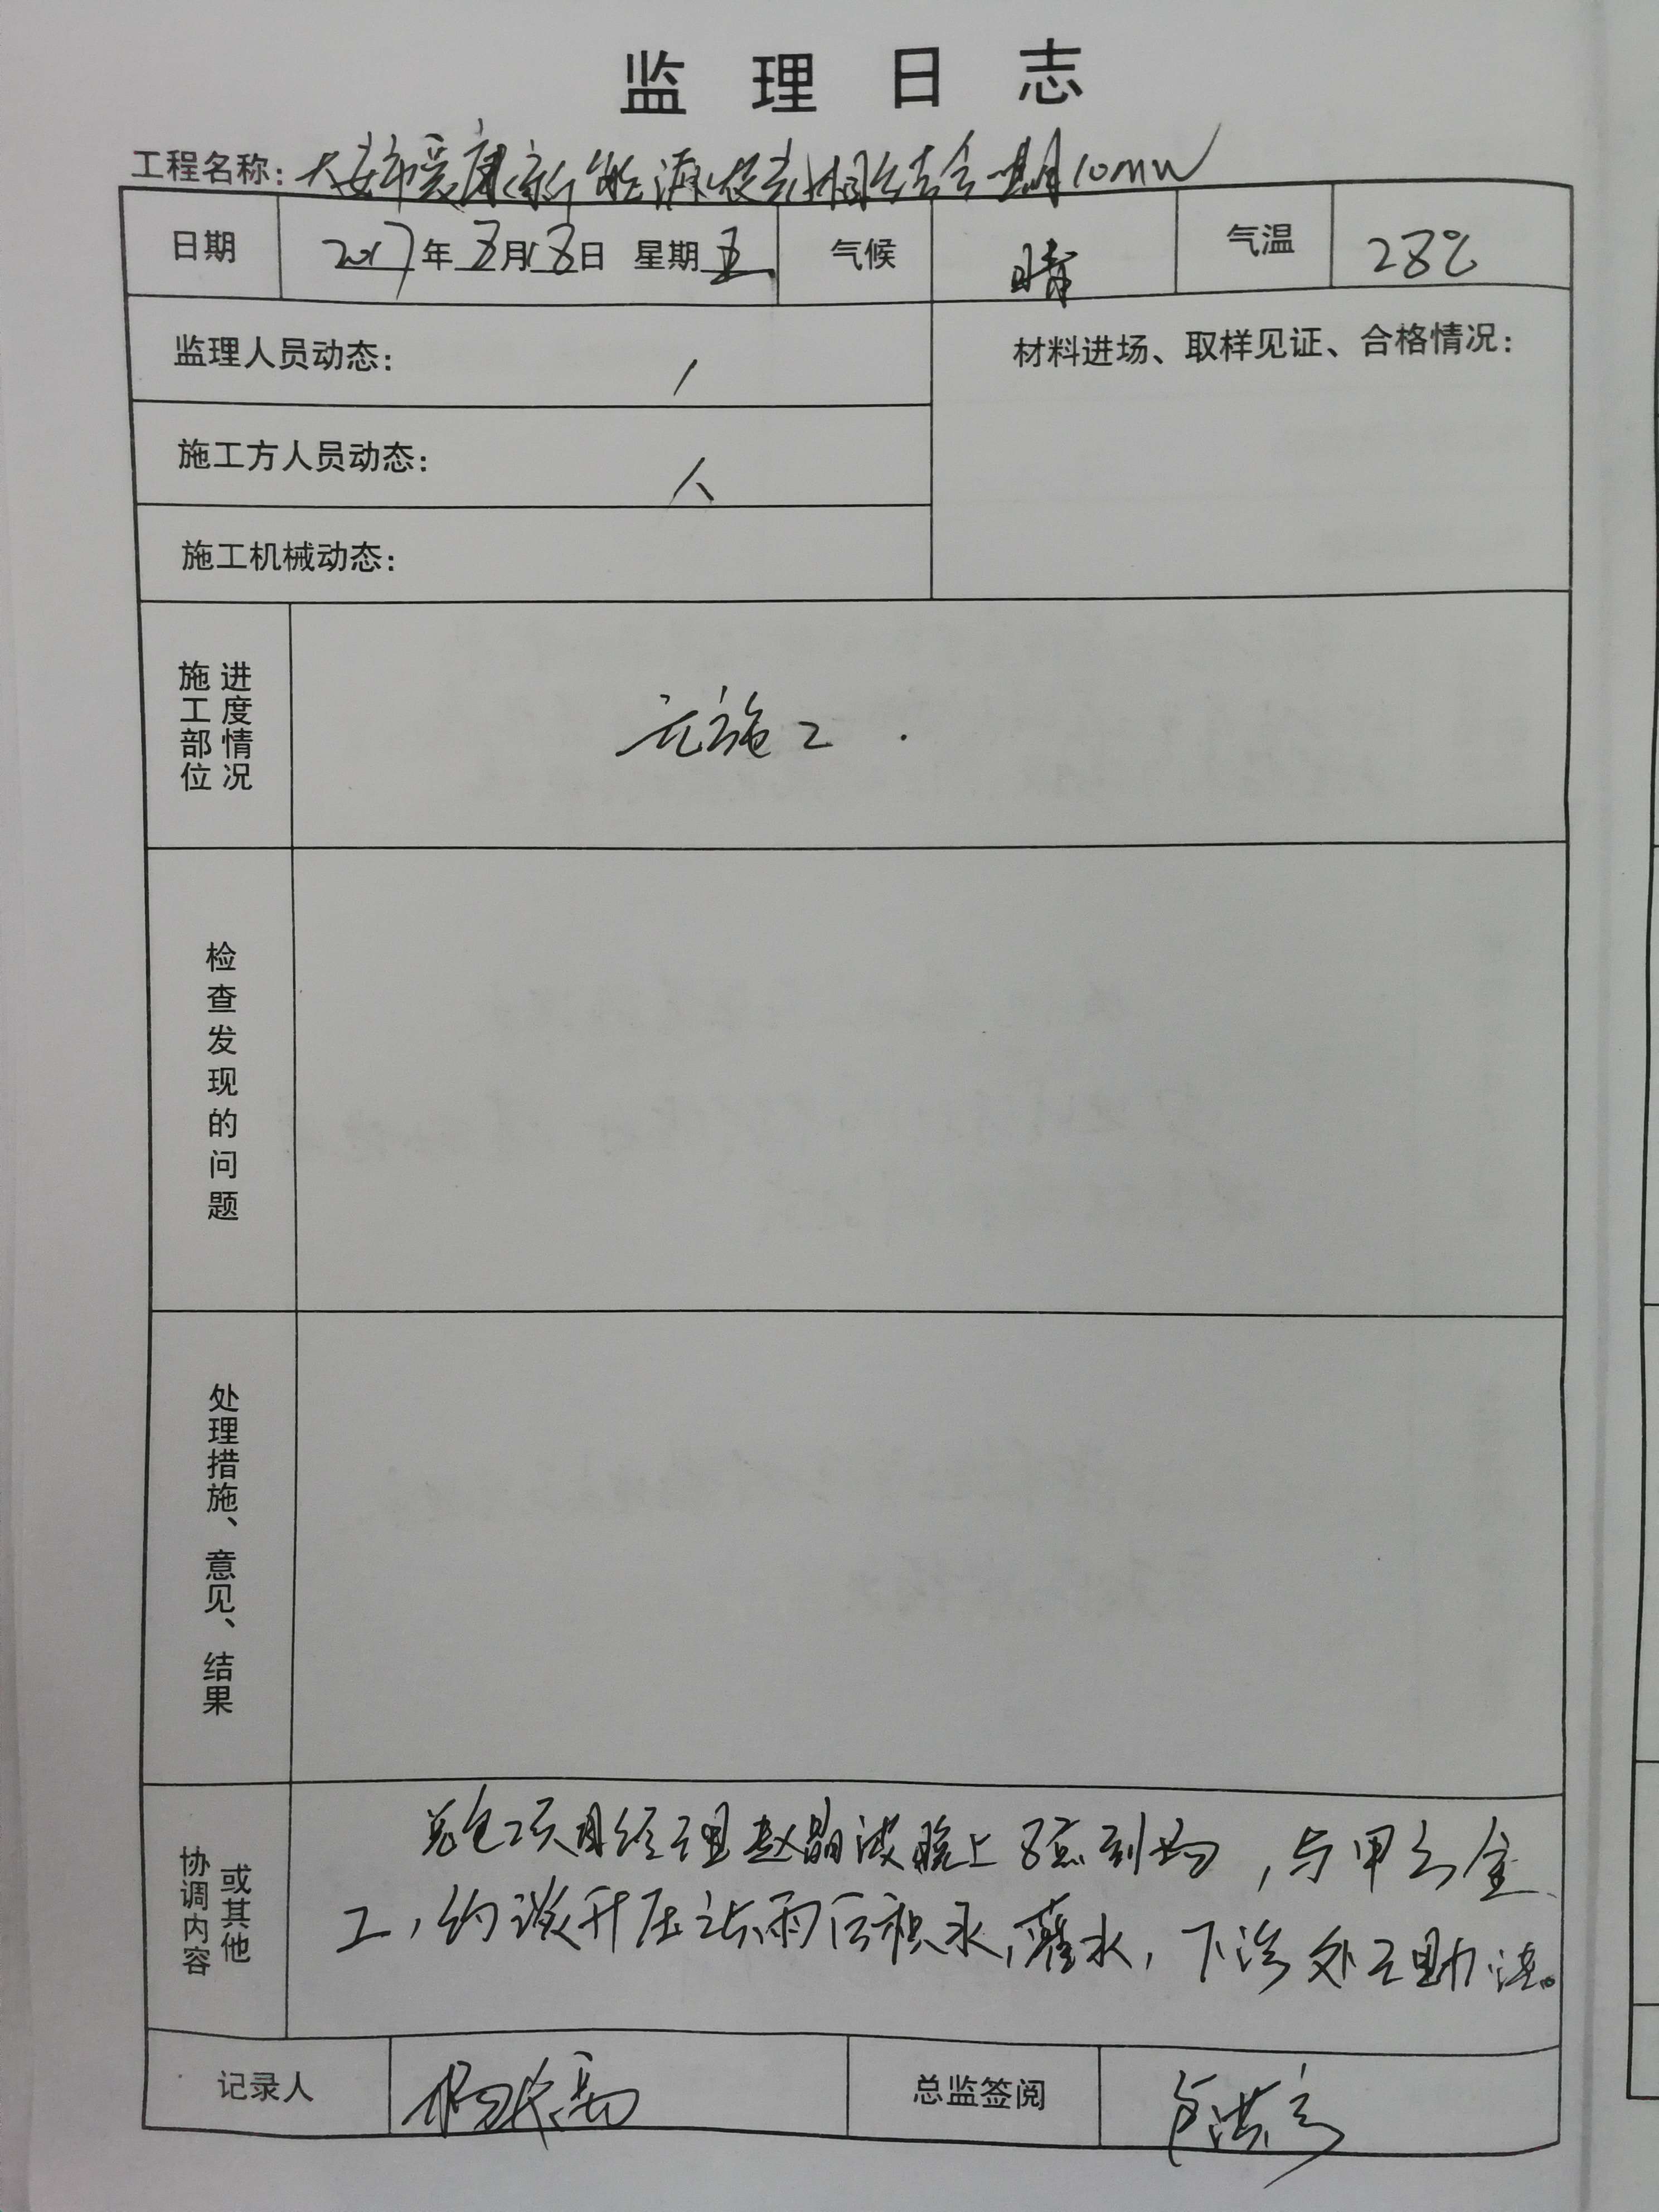 监理日志
工程名称：大安市爱康新能源牧光相结合一期10mw
日期 2017年8月18日 星期五 气候 晴 气温 28℃
监理人员动态： /
材料进场、取样见证、合格情况：
施工方人员动态： 人
施工机械动态：
施工部位
进度情况
无施工.
检查发现的问题
处理措施、意见、结果
协调内容
或其他
总包项目经理赵晶波晚上8点到场，与甲方金
工，约谈开压站雨后积水，灌水，下沉处理助法。
记录人
总监签阅